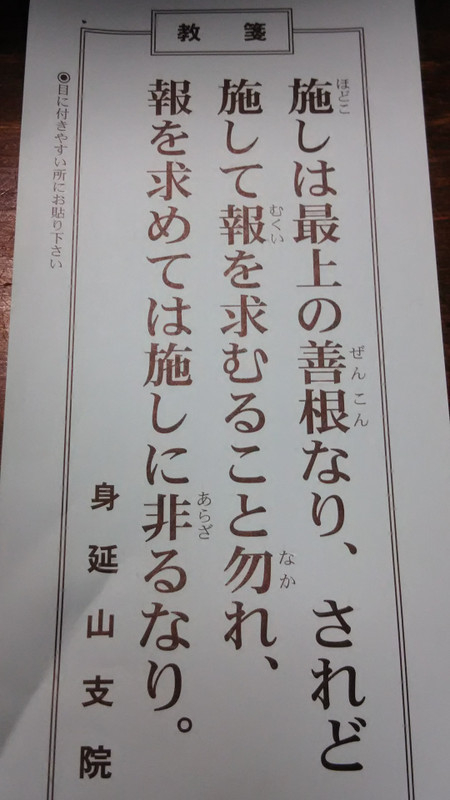 教箋
施しは最上の善根なり、されど
施して報を求むること勿れ、
報を求めては施しに非るなり。
身延山支院
◉目に付きやすい所にお貼り下さい
ほどこ
ぜんこん
むくい
なか
あらざ